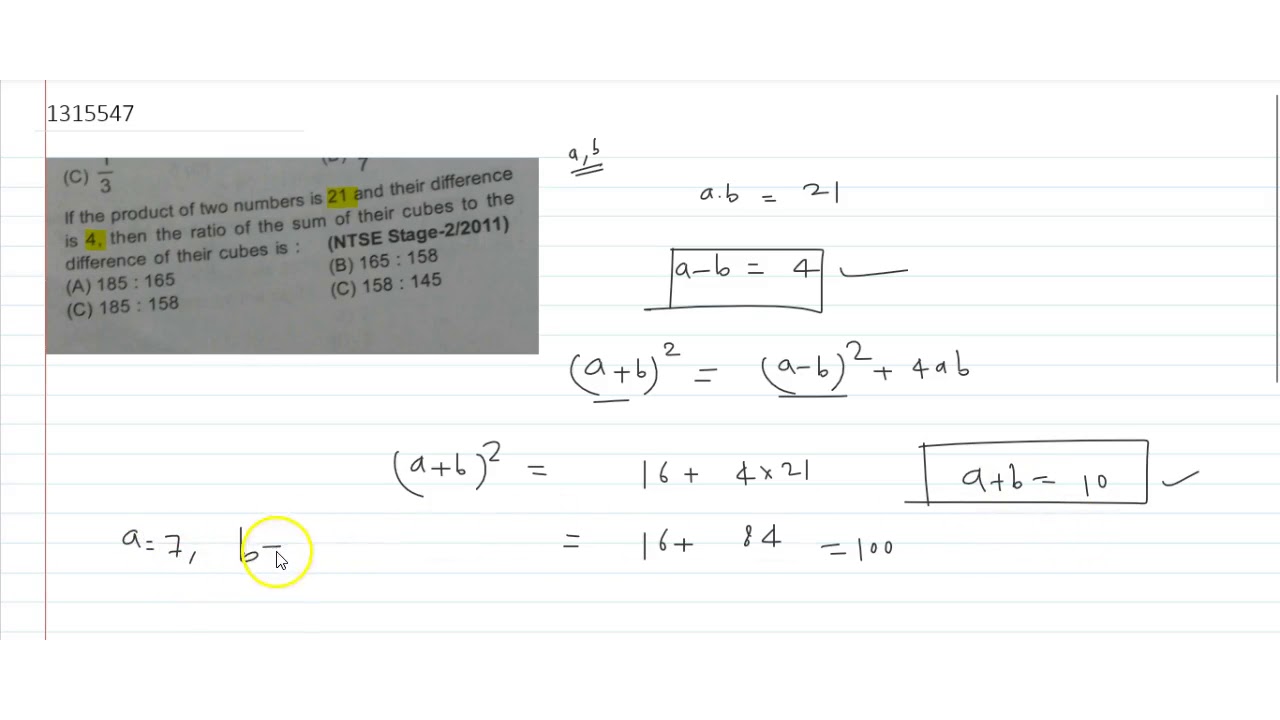 1315547
(C) 1/3
7
If the product of two numbers is 21 and their difference
is 4, then the ratio of the sum of their cubes to the
difference of their cubes is : (NTSE Stage-2/2011)
(A) 185 : 165 (B) 165 : 158
(C) 185 : 158 (C) 158 : 145
a,b
a.b = 21
a-b = 4
(a+b)² = (a-b)² + 4ab
(a+b)² = 16 + 4×21
a+b = 10
a=7, b=
= 16+ 84 =100